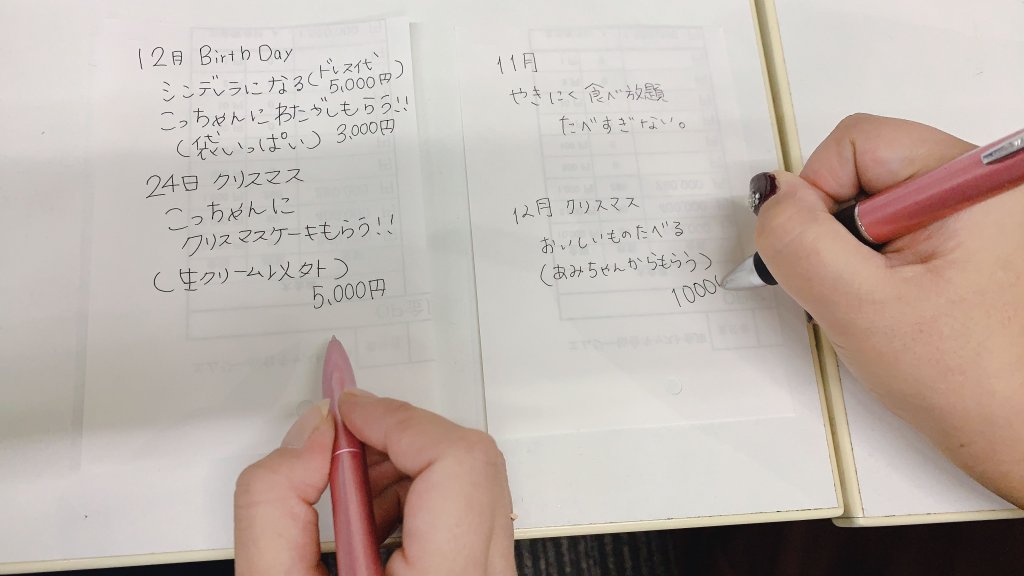 12月 Birth Day
シンデレラになる(ドレス代
5,000円)
こっちゃんにわたがしもらう!!
(袋いっぱい) 3,000円
24日 クリスマス
こっちゃんに
クリスマスケーキもらう!!
(生クリーム以外)
5,000円
11月
やきにく食べ放題
たべすぎない。
12月 クリスマス
おいしいものたべる
(あみちゃんからもらう)
1000